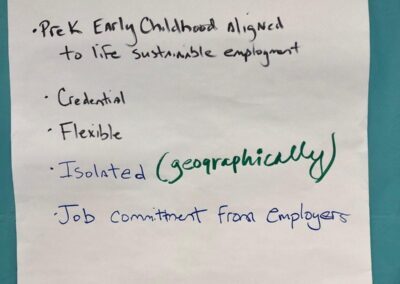 · PreK Early Childhood Aligned
to life sustainable employment
· Credential
· Flexible
· Isolated (geographically)
· Job commitment from employers